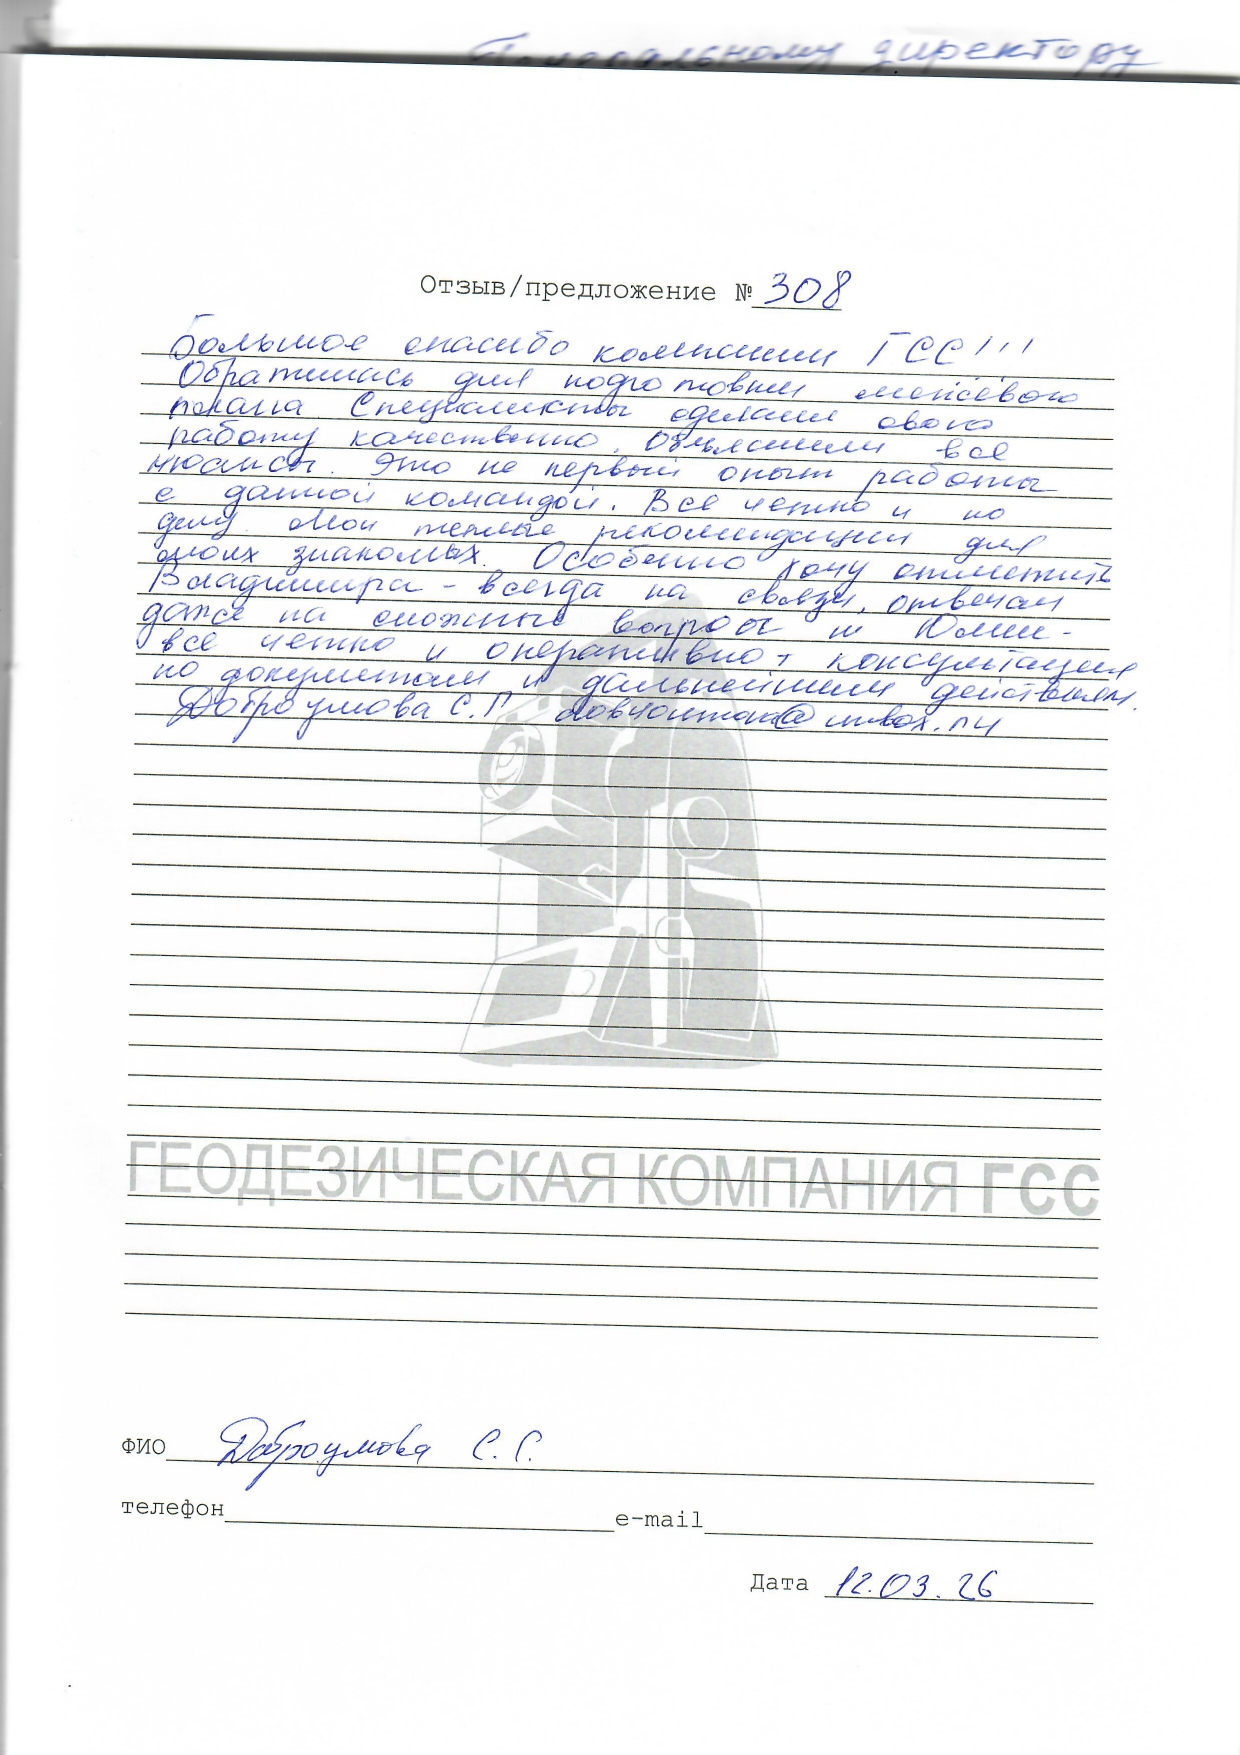 директору
Отзыв/предложение № 308
Большое спасибо компании ГСС!!!
Обратилась для подготовки межевого
плана Специалисты сделали свою
работу качественно. Объяснили все
нюансы. Это не первый опыт работы
с данной командой. Все четко и по
делу. Мои теплые рекомендации для
моих знакомых. Особенно хочу отметить
Владимира - всегда на связи, отвечал
даже на сложные вопросы и Юлии -
все четко и оперативно + консультация
по документам и дальнейшим действиям.
Доброумова С.Г.
ГЕОДЕЗИЧЕСКАЯ КОМПАНИЯ ГСС
ФИО Доброумова С. Г.
телефон e-mail
Дата 12.03.26